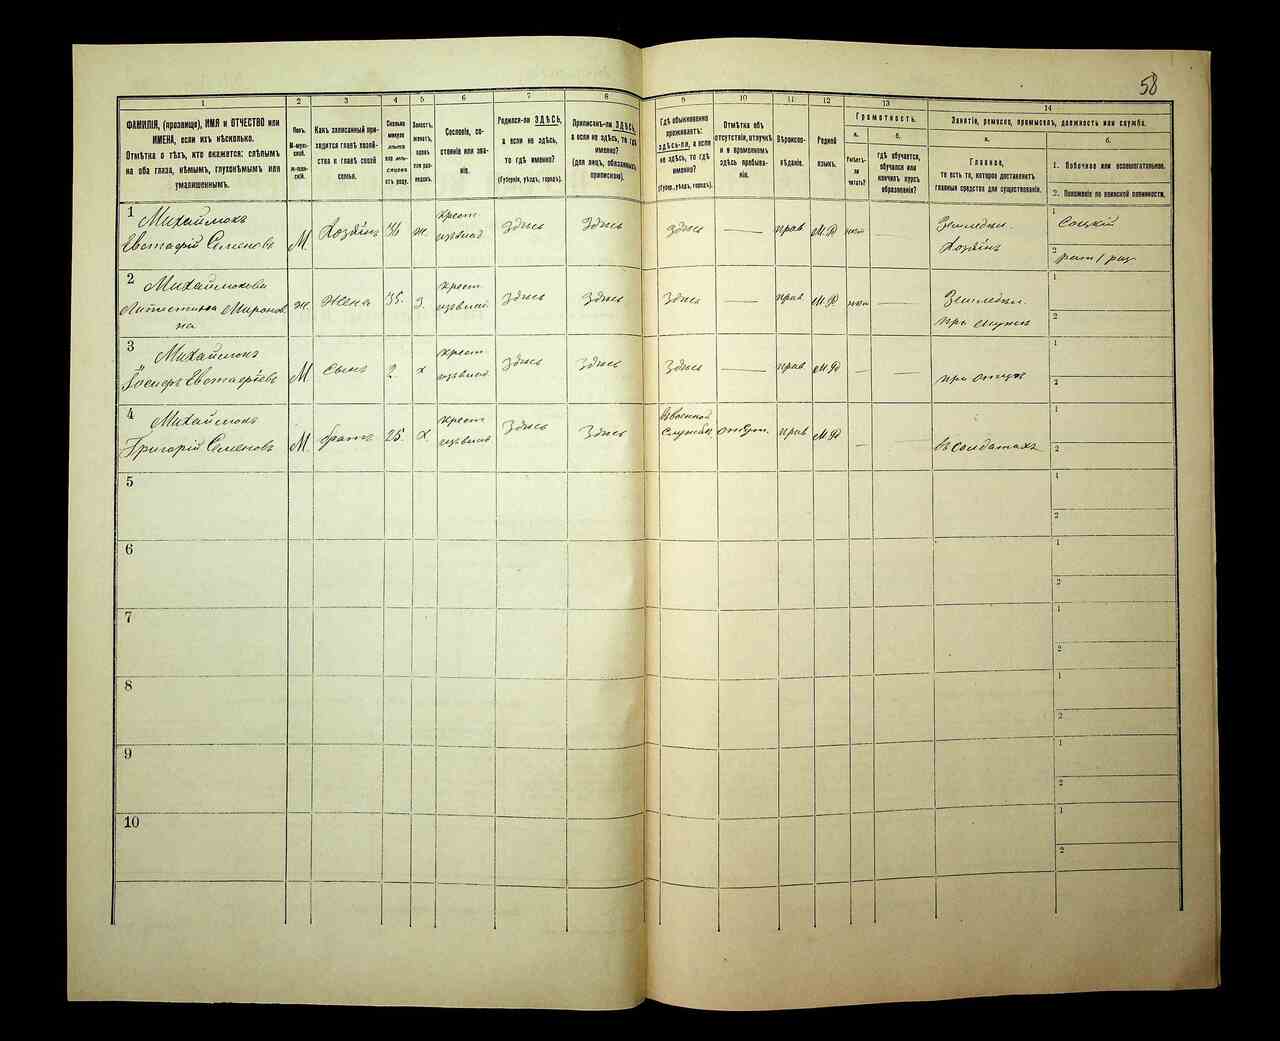 58
1
2
3
4
5
6
7
8
9
10
11
12
13
14
ФАМИЛІЯ, (прозвище), ИМЯ и ОТЧЕСТВО или
ИМЕНА, если ихъ нѣсколько.
Отмѣтка о тѣхъ, кто окажется: слѣпымъ
на оба глаза, нѣмымъ, глухонѣмымъ или
умалишеннымъ.
Полъ.
М-муж-
ской.
Какъ записанный при-
ходится главѣ хозяй-
ства и главѣ своей
семьи.
Сколько
минуло
лѣтъ
Холостъ,
женатъ,
вдовъ
или раз-
веденъ.
Сословіе, со-
стояніе или зва-
ніе.
Родился-ли ЗДѢСЬ,
а если не здѣсь,
то гдѣ именно?
(Губернія, уѣздъ, городъ).
Приписанъ-ли ЗДѢСЬ,
а если не здѣсь, то гдѣ
именно?
(для лицъ, обязанныхъ
припискою).
Гдѣ обыкновенно
проживаетъ:
здѣсь-ли, а если
не здѣсь, то гдѣ
именно?
(Губернія, уѣздъ, городъ).
Отмѣтка объ
отсутствіи, отлучкѣ
и о временномъ
здѣсь пребыва-
ніи.
Вѣроиспо-
вѣданіе.
Родной
языкъ.
Грамотность.
а.
б.
Умѣетъ-
ли
читать?
гдѣ обучается,
обучался или
кончилъ курсъ
образованія?
Занятіе, ремесло, промыселъ, должность или служба.
а.
б.
Главное,
то есть то, которое доставляетъ
главныя средства для существованія.
1. Побочное или вспомогательное.
2. Положеніе по воинской повинности.
1
Михайлюкъ
Евстафій Семеновъ
М
Хозяинъ
ж.
крест.
Здѣсь
Здѣсь
Здѣсь
прав
М.Р
Земледѣл.
Хозяинъ
1
Соцкій
2
2
Михайлюкова
Мироновна
ж.
Жена
35.
з
крест.
Здѣсь
Здѣсь
Здѣсь
прав
М.Р
Земледѣл.
при мужѣ
1
2
3
Михайлюкъ
Іосифъ Евстафіевъ
М
Сынъ
2.
х
крест.
Здѣсь
Здѣсь
Здѣсь
прав
М.Р
при отцѣ
1
2
4
Михайлюкъ
Григорій Семеновъ
М
братъ
25.
х.
крест.
Здѣсь
Здѣсь
въ военной
службѣ
прав
М.Р
въ солдатахъ
1
2
5
1
2
6
1
2
7
1
2
8
1
2
9
1
2
10
1
2